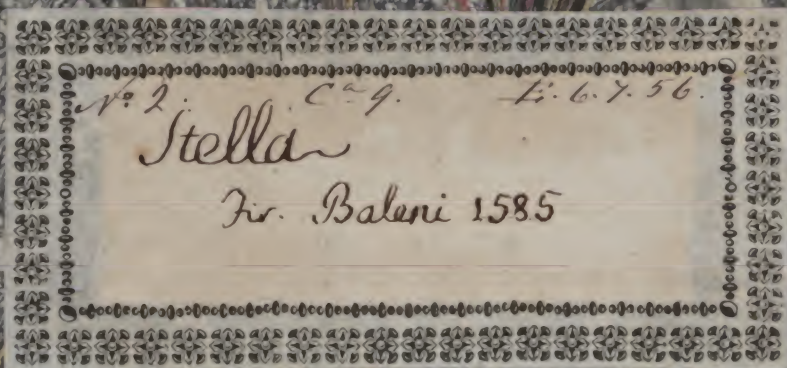 No. 2. Ca 9. Li. 6. 7. 56.
Stella
Fir. Baleni 1585